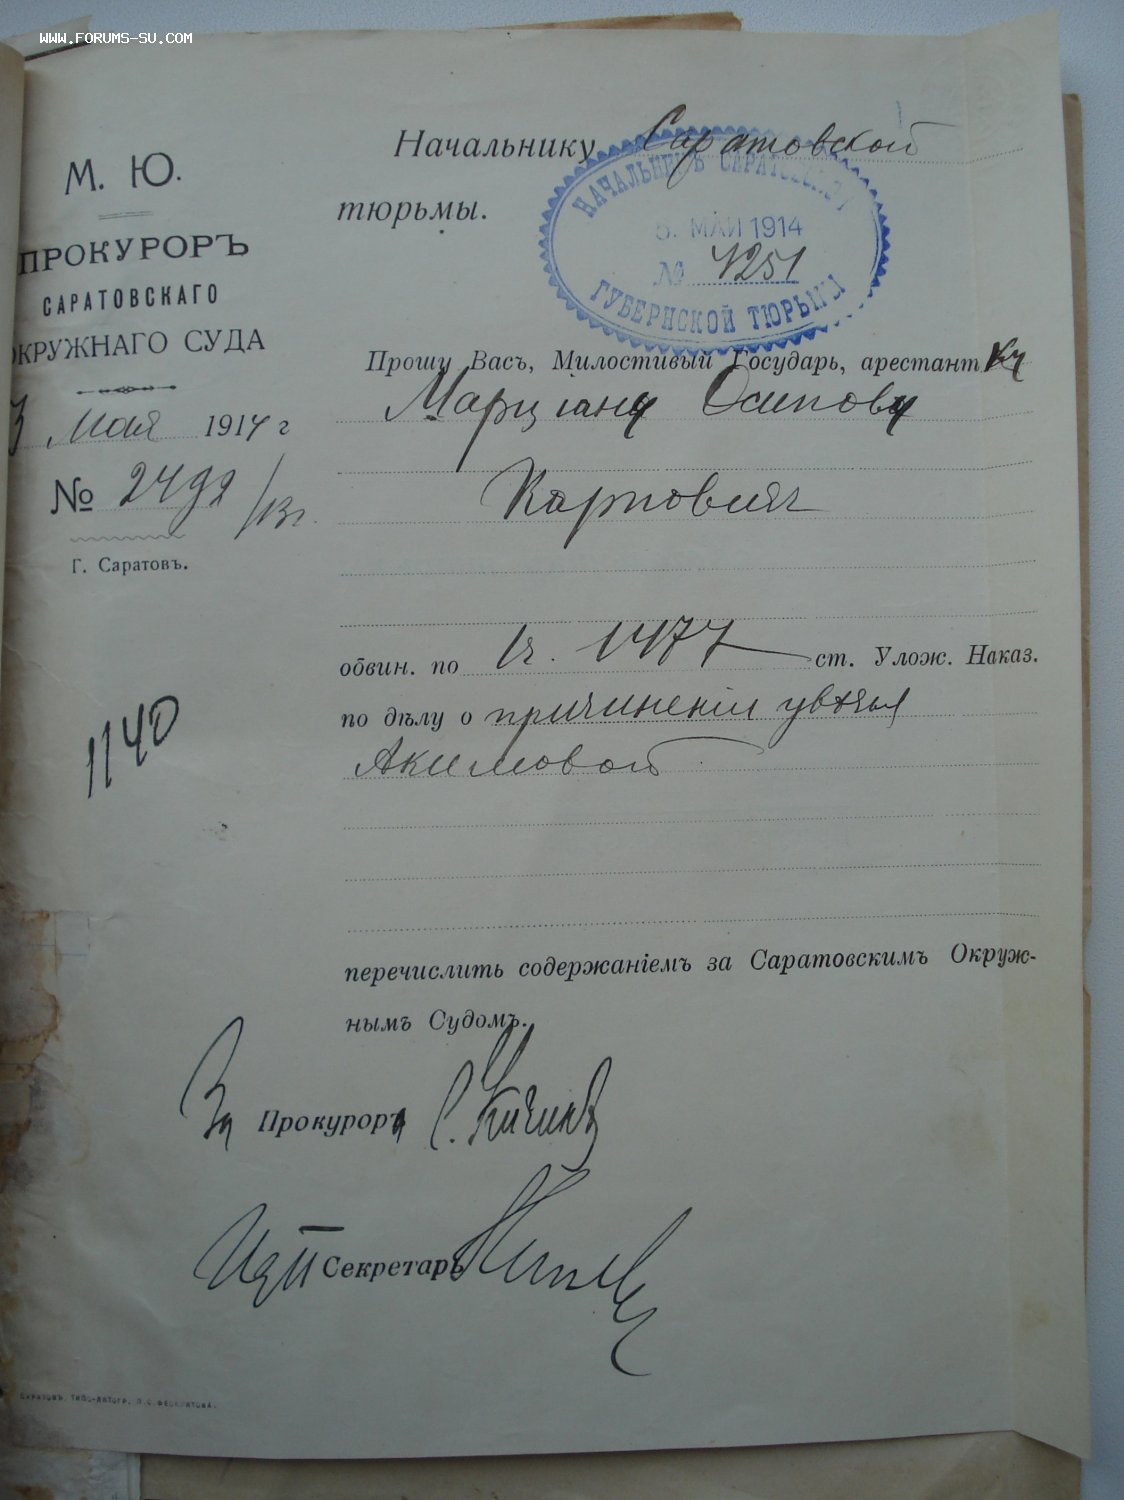 WWW.FORUMS-SU.COM
М. Ю.
ПРОКУРОРЪ
САРАТОВСКАГО
ОКРУЖНАГО СУДА
3 Мая 1914 г
№ 2492/13г.
Г. Саратовъ.
1140
Начальнику Саратовской
тюрьмы.
НАЧАЛЬНИКЪ САРАТОВСКОЙ
5. МАЙ 1914
№ 4251
ГУБЕРНСКОЙ ТЮРЬМЫ
Прошу Васъ, Милостивый Государь, арестантку
Марціану Осипову
Карпович
обвин. по 1 ч. 1477 ст. Улож. Наказ.
по дѣлу о причиненіи увѣчья
Акимовой
перечислить содержаніемъ за Саратовскимъ Окруж-
нымъ Судомъ.
За Прокурора С.
Секретарь
САРАТОВЪ. ТИПО-ЛИТОГР. П. С. ФЕОКРИТОВА.